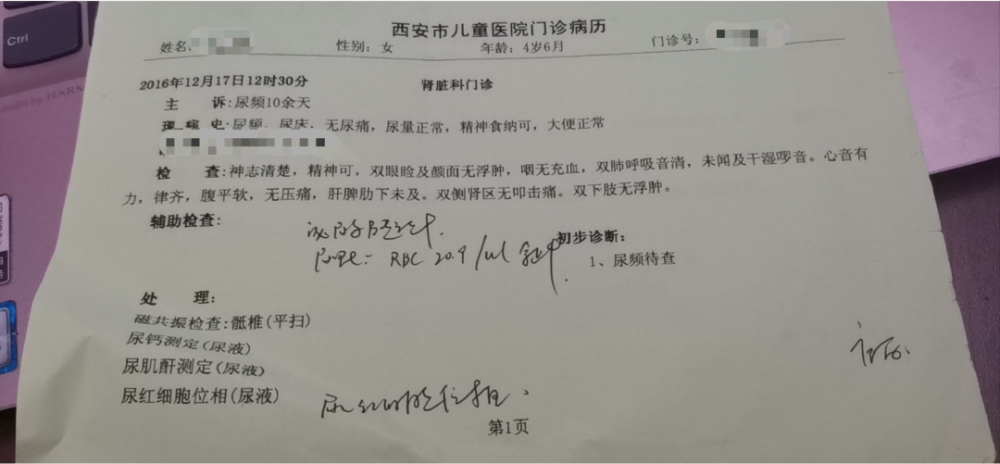 Ctrl
西安市儿童医院门诊病历
姓名: 性别: 女 年龄: 4岁6月 门诊号:
2016年12月17日12时30分 肾脏科门诊
主 诉:尿频10余天
现 病 史:尿频、尿床、无尿痛，尿量正常，精神食纳可，大便正常
检 查:神志清楚，精神可，双眼睑及颜面无浮肿，咽无充血，双肺呼吸音清，未闻及干湿啰音。心音有
力，律齐，腹平软，无压痛，肝脾肋下未及。双侧肾区无叩击痛。双下肢无浮肿。
辅助检查:
RBC 20.9/ul
初步诊断:
1、尿频待查
处 理:
磁共振检查:骶椎(平扫)
尿钙测定(尿液)
尿肌酐测定(尿液)
尿红细胞位相(尿液)
尿红细胞位相.
第1页